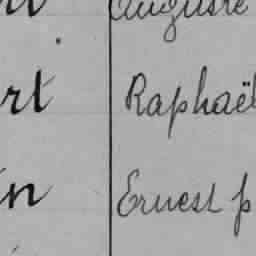 Auguste
rt Raphaël
in Ernest p